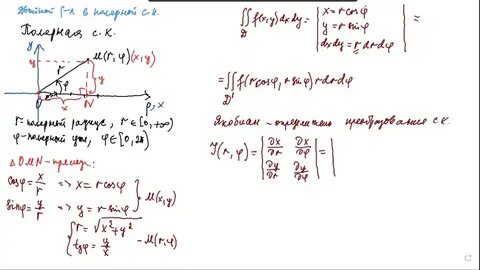 Двойной ∫-л в полярной с.к.
Полярная с.к.
y
y
M(r,φ)(x,y)
r
φ
y
O
x
N
ρ, x
r - полярный радиус, r ∈ [0, +∞)
φ - полярный угол, φ ∈ [0, 2π)
Δ OMN - прямоуг.:
cosφ = x/r => x = r cosφ
sinφ = y/r => y = r sinφ } M(x,y)
{ r = √(x²+y²)
tgφ = y/x } - M(r,φ)
∬_D f(x,y) dx dy = | x = r cosφ
y = r sinφ
dx dy = r dr dφ | =
= ∬_D' f(r cosφ, r sinφ) r dr dφ
Якобиан - определитель преобразования с.к.
J(r,φ) = | ∂x/∂r ∂x/∂φ
∂y/∂r ∂y/∂φ | = |